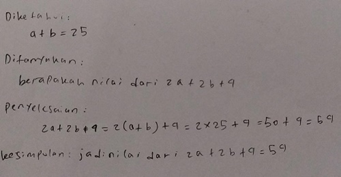 Diketahui:
a+b=25
Ditanyakan:
berapakah nilai dari 2a+2b+9
Penyelesaian:
2a+2b+9=2(a+b)+9=2×25+9=50+9=59
kesimpulan: jadi nilai dari 2a+2b+9=59